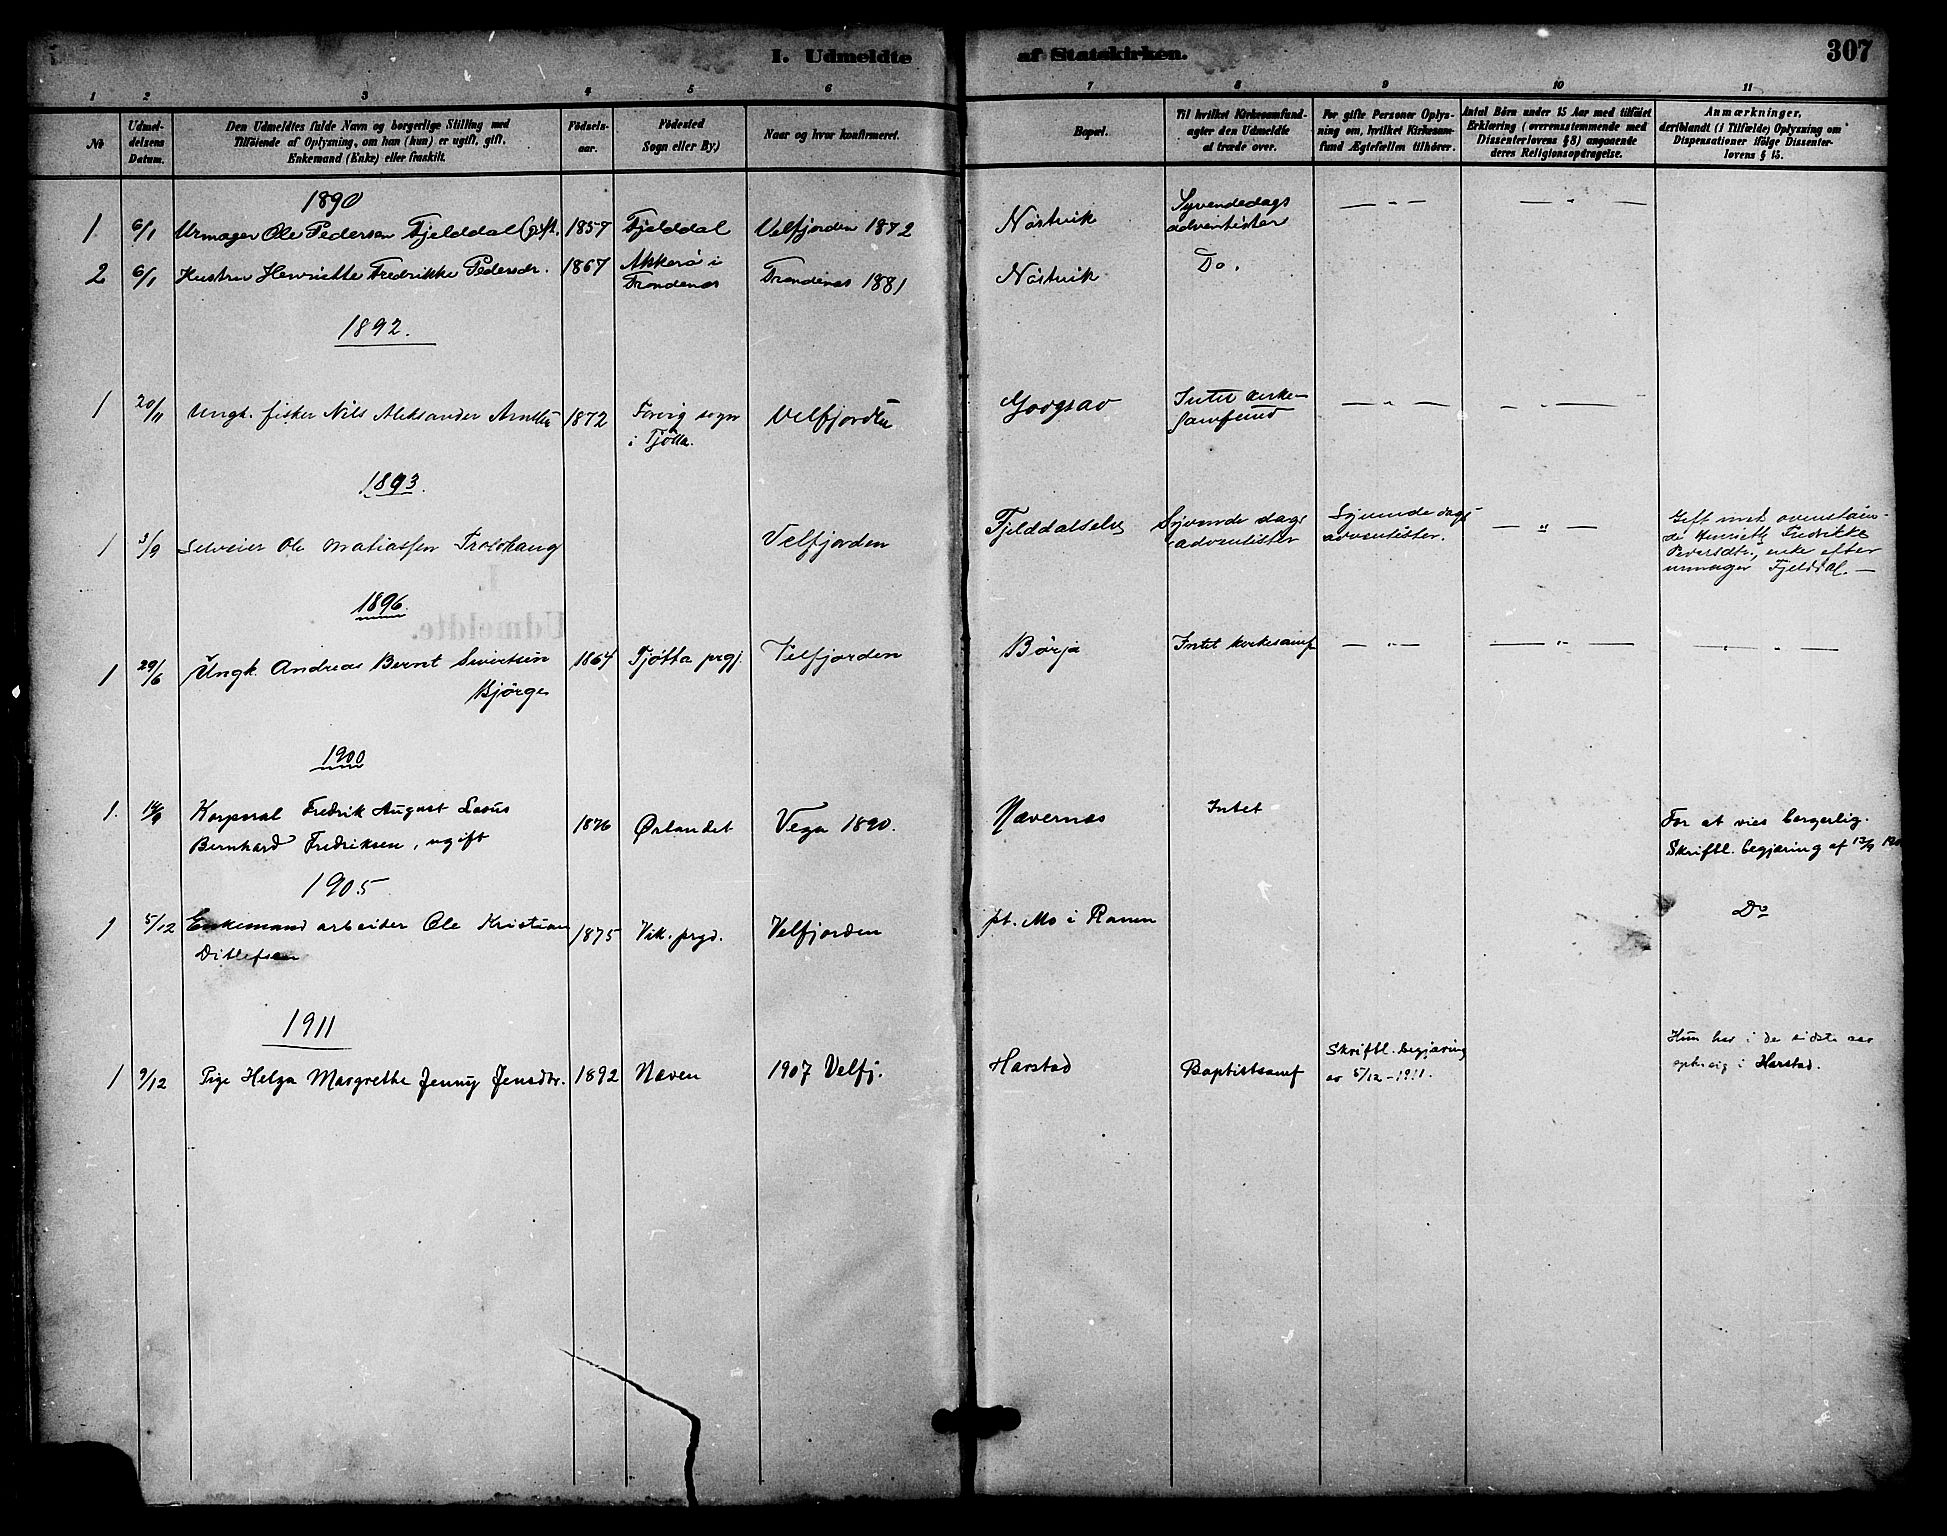 I. Udmeldte af Statskirken. 307
1 2 3 4 5 6 7 8 9 10 11
No
Udmel-
delsens
Datum.
Den Udmeldtes fulde Navn og borgerlige Stilling med
Tilföiende af Oplysning, om han (hun) er ugift, gift,
Enkemand (Enke) eller fraskilt.
Födsels-
aar.
Födested
Sogn eller By.)
Naar og hvor konfirmeret.
Bopæl.
Til hvilket Kirkesamfund-
agter den Udmeldte
at træde over.
For gifte Personer Oplys-
ning om, hvilket Kirkesam-
fund Ægtefællen tilhörer.
Antal Börn under 15 Aar med tilföiet
Erklæring (overensstemmende med
Dissenterlovens § 8) angaaende
deres Religionsopdragelse.
Anmærkninger,
deriblandt (i Tilfælde) Oplysning om
Dispensationer ifölge Dissenter-
lovens § 15.
1890
1. 6/1 Urmager Ole Pedersen Fjelddal (gift. 1857 Fjelddal Velfjorden 1872 Nöstvik Syvendedags
adventister — „ — — „ —
2 6/1 Hustru Henriette Fredrikke Pedersdr. 1867 Akkerö i
Trondenæs Trondenæs 1881 Nöstvik Do.
1892.
1 20/11 Ungk. fisker Nils Aleksander 1872 Forvig sogn
i Tjøtta. Velfjorden Intet kirke-
samfund — „ — — „ —
1893.
1 3/9 Selveier Ole Matiassen Troldhaug Velfjorden Fjelddalselv Syvende dags
adventister Syvende dags
adventister. — „ — Gift med ovenståen-
de Henriette Fredrikke
Pedersdtr., enke efter
urmager Fjelddal. —
1896.
1 29/6 Ungk. Andreas Bernt Sivertsen
Bjørge 1864 Tjøtta prgj. Velfjorden Børja Intet kirkesamf — „ — — „ — — „ —
1900
1. 14/9 Korporal Fredrik August
Bernhard Fredriksen, ugift 1876 Ørlandet Vega 1890. Nævernæs Intet For at vies borgerlig.
Skriftl. begjæring af 13/9
1905
1 5/12 Enkemand arbeider Ole Kristian
Ditlefsen 1875 Vik. prgd. Velfjorden pt. Mo i Ranen Do
1911
1 9/12 Pige Helga Margrethe Jenny Jensdtr. 1892 Næven 1907 Velfj. Harstad Baptistsamf Skriftl. begjæring
av 5/12-1911. Hun har i de sidste aar
i Harstad.
I.
Udmeldte.